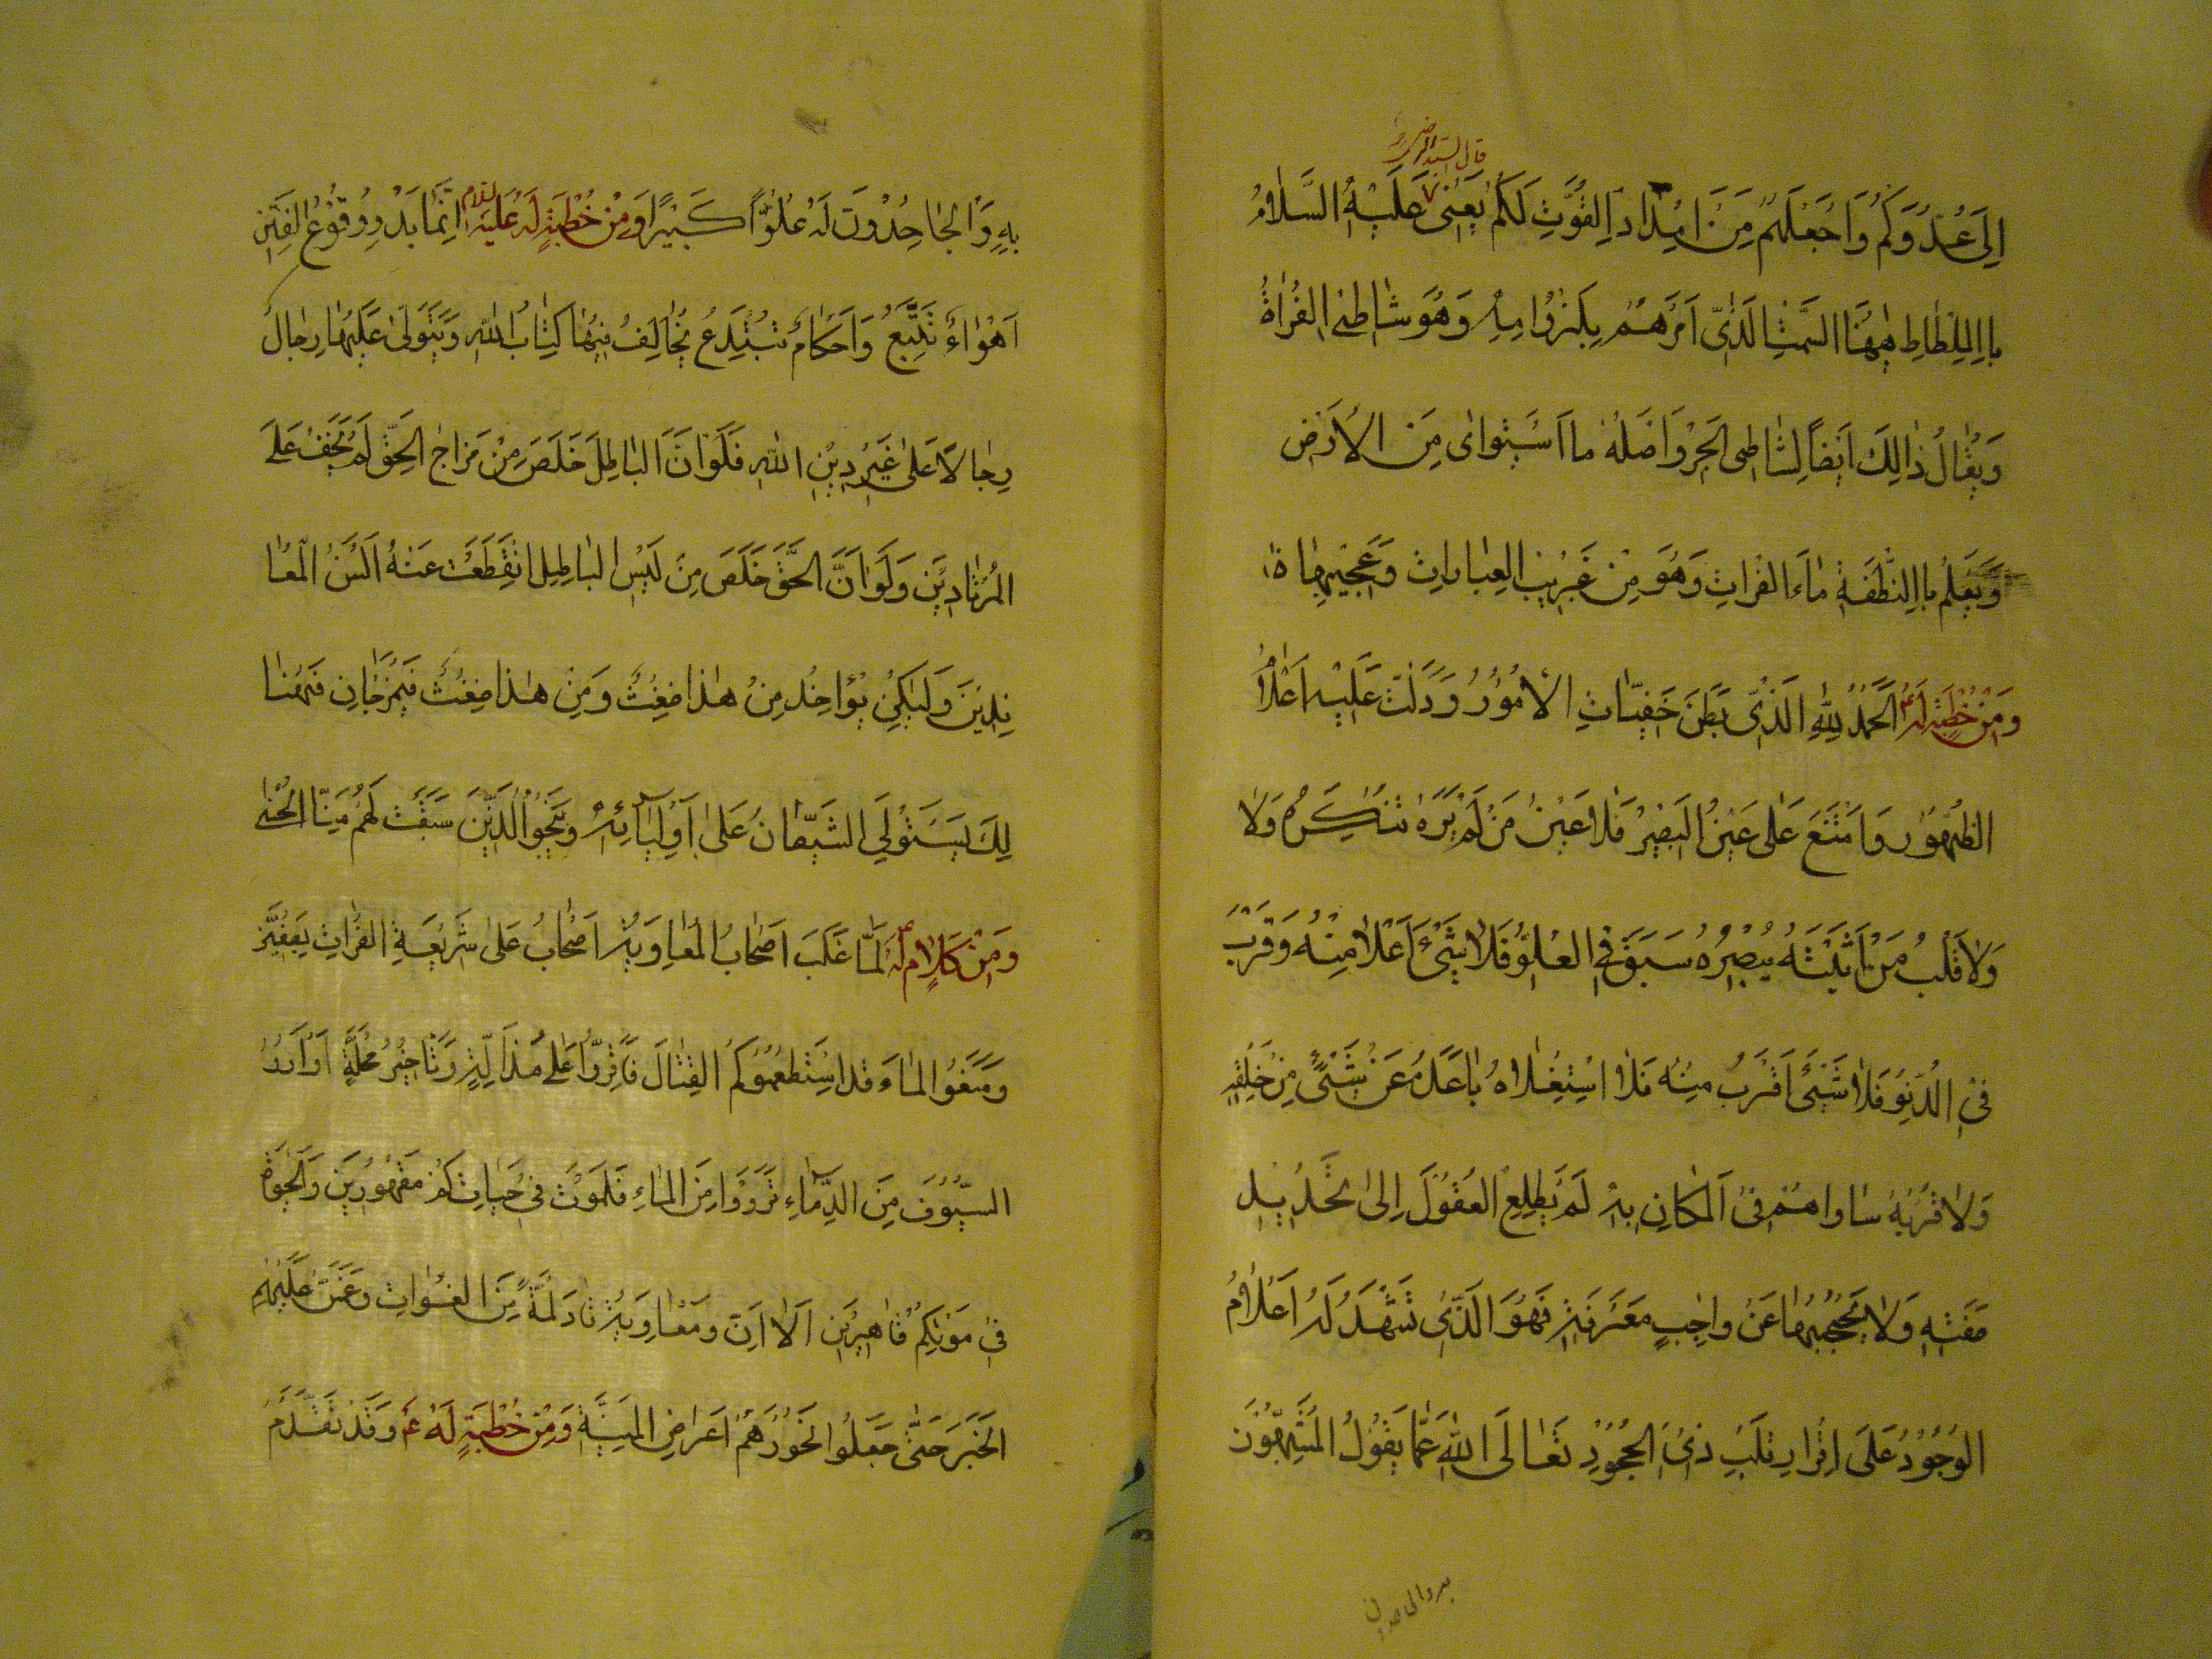 قال السيد الرضي
إِلَى عَدُوِّكُمْ وَاَجْعَلَهُمْ مِنْ اَمْدَادِ الْقُوَّتِ لَكُمْ يَعْنِي عَلَيْهِ السَّلَامُ
بِالمِلْطَاطِ هٰهُنَا السَّمْتَ الَّذِي اَمَرَهُمْ بِلُزُوْمِهِ وَهُوَ شَاطِئُ الفُرَاةُ
وَيُقَالُ ذٰالِكَ اَيْضًا لِشَاطِئِ البَحْرِ وَاَصْلُهُ مَا اسْتَوٰاى مِنَ الْاَرْضِ
وَيَعْلَمُ بِالنُّطْفَةِ مَاءَ الفُرَاتِ وَهُوَ مِنْ غَرِيْبِ العِبَارَاتِ وَعَجِيْبِهَا
وَمِنْ خُطْبَةٍ لَهُ ع الْحَمْدُ لِلّٰهِ الَّذِي بَطَنَ خَفِيَّاتِ الْاُمُوْرُ وَدَلَّتْ عَلَيْهِ اَعْلَامُ
الظُّهُوْرِ وَامْتَنَعَ عَلٰى عَيْنِ البَصِيْرِ فَلَا عَيْنُ مَنْ لَمْ يَرَهُ تُنْكِرُهُ وَلَا
وَلَا قَلْبُ مَنْ اَثْبَتَهُ يُبْصِرُهُ سَبَقَ فِي العُلُوِّ فَلَا شَيْءَ اَعْلَا مِنْهُ وَقَرُبَ
فِي الدُّنُوِّ فَلَا شَيْءَ اَقْرَبُ مِنْهُ فَلَا اسْتِعْلَاهُ بَاعَدَهُ عَنْ شَيْءٍ مِنْ خَلْقِهِ
وَلَا قُرْبُهُ سَاوَاهُمْ فِي الْمَكَانِ بِهِ لَمْ يُطْلِعِ العُقُوْلَ اِلٰى تَحْدِيْدِ
صِفَتِهِ وَلَا يَحْجُبْهَا عَنْ وَاجِبِ مَعْرِفَتِهِ فَهُوَ الَّذِي تَشْهَدُ لَهُ اَعْلَامُ
الوُجُوْدُ عَلَى اِقْرَارِ قَلْبِ ذِي الجُحُوْدِ تَعَالَى اللّٰهِ عَمَّا يَقُوْلُ المُشَبِّهُوْنَ
بِهِ وَالْجَاحِدُوْنَ لَهُ عُلُوًّا كَبِيْرًا وَمِنْ خُطْبَةٍ لَهُ عَلَيْهِ السلام اِنَّمَا بَدْءُ وُقُوْعِ الفِتَنِ
اَهْوَاءٌ تُتَّبَعُ وَاَحْكَامٌ تُبْتَدَعُ يُخَالِفُ فِيْهَا كِتَابُ اللّٰهِ وَيَتَوَلّٰى عَلَيْهَا رِجَالُ
رِجَالًا عَلٰى غَيْرِ دِيْنِ اللّٰهِ فَلَوْ اَنَّ البَاطِلَ خَلَصَ مِنْ مَزَاجِ الحَقِّ لَمْ يَخْفَ عَلَى
الْمُرْتَادِيْنَ وَلَوْ اَنَّ الْحَقَّ خَلَصَ مِنْ لَبْسِ البَاطِلِ انْقَطَعَتْ عَنْهُ اَلْسُنُ الْمُعَا
نِدِيْنَ وَلٰكِنْ يُؤْاخَذُ مِنْ هٰذَا ضِغْثٌ وَمِنْ هٰذَا ضِغْثٌ فَيُمْزَجَانِ فَهُنَا
لِكَ يَسْتَوْلِي الشَّيْطَانُ عَلٰى اَوْلِيَآئِهِ وَيَنْجُوْ الَّذِيْنَ سَبَقَتْ لَهُمْ مِنَّا الْحُسْنٰى
وَمِنْ كَلَامٍ لَهُ لَمَّا غَلَبَ اَصْحَابُ الْمُعَاوِيَةِ اَصْحَابُ عَلٰى شَرِيْعَةِ الفُرَاتِ بِصِفِّيْنَ
وَمَنَعُوْا المَاءَ قَدِ اسْتَطْعَمُوْكُمُ القِتَالَ فَاَقِرُّوْا عَلٰى مَذَلَّةٍ وَتَاْخِيْرِ مَحَلَّةٍ اَوْ
السُّيُوْفَ مِنَ الدِّمَآءِ تَرْوَوْا مِنَ المَاءِ فَلْمَوْتُ فِي حَيَاتِكُمْ مَقْهُوْرِيْنَ وَالْحَيٰوةُ
فِي مَوْتِكُمْ قَاهِرِيْنَ اَلَا اِنَّ وَمُعَاوِيَةَ قَادَ لُمَّةً مِنَ الغُوَاتِ وَعَمَّسَ عَلَيْهِمُ
الْخَبَرَ حَتّٰى جَعَلُوْا نُحُوْرَهُمْ اَعْرَاضِ الْمَنِيَّةِ وَمِنْ خُطْبَةٍ لَهُ ع وَقَدْ تَقَدَّمُ